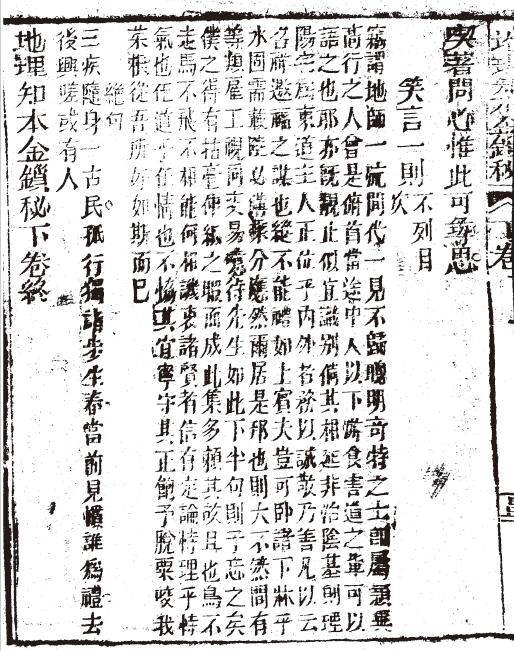 地理知本金鎖秘 下卷
與著問心惟此可尋思
笑言一則 不列目次
竊謂地師一 問代一見不 聰明奇特之士卽屬 異
高行之人曾是俯首當途中人以下 食害道之輩可以
語之也邪亦旣觀止似宜識別備其相延非治陰基則理
陽宅爲東道主人正位乎內外者務以誠敬乃善凡以云
名將邀福之謀也縱不能禮如上賓夫豈可卧諸下牀乎
水固需 陸必 分應然爾居是邦也則大不然間有
等類屋工視何交易 待先生如此下半句則予忘之矣
僕之得有拈毫伸紙之暇而成此集多賴其 且也鳥不
走馬不飛不相能何相譏衷諸賢者信有定論恃理乎恃
氣也任道乎任情也不 其宜寧守其正飽予脫粟咬我
菜根從吾所好如斯而已
絶句
三疾隨身一古民孤行獨詣步生春當前見慣誰爲禮去
後興嗟或有人
地理知本金鎖秘下卷終